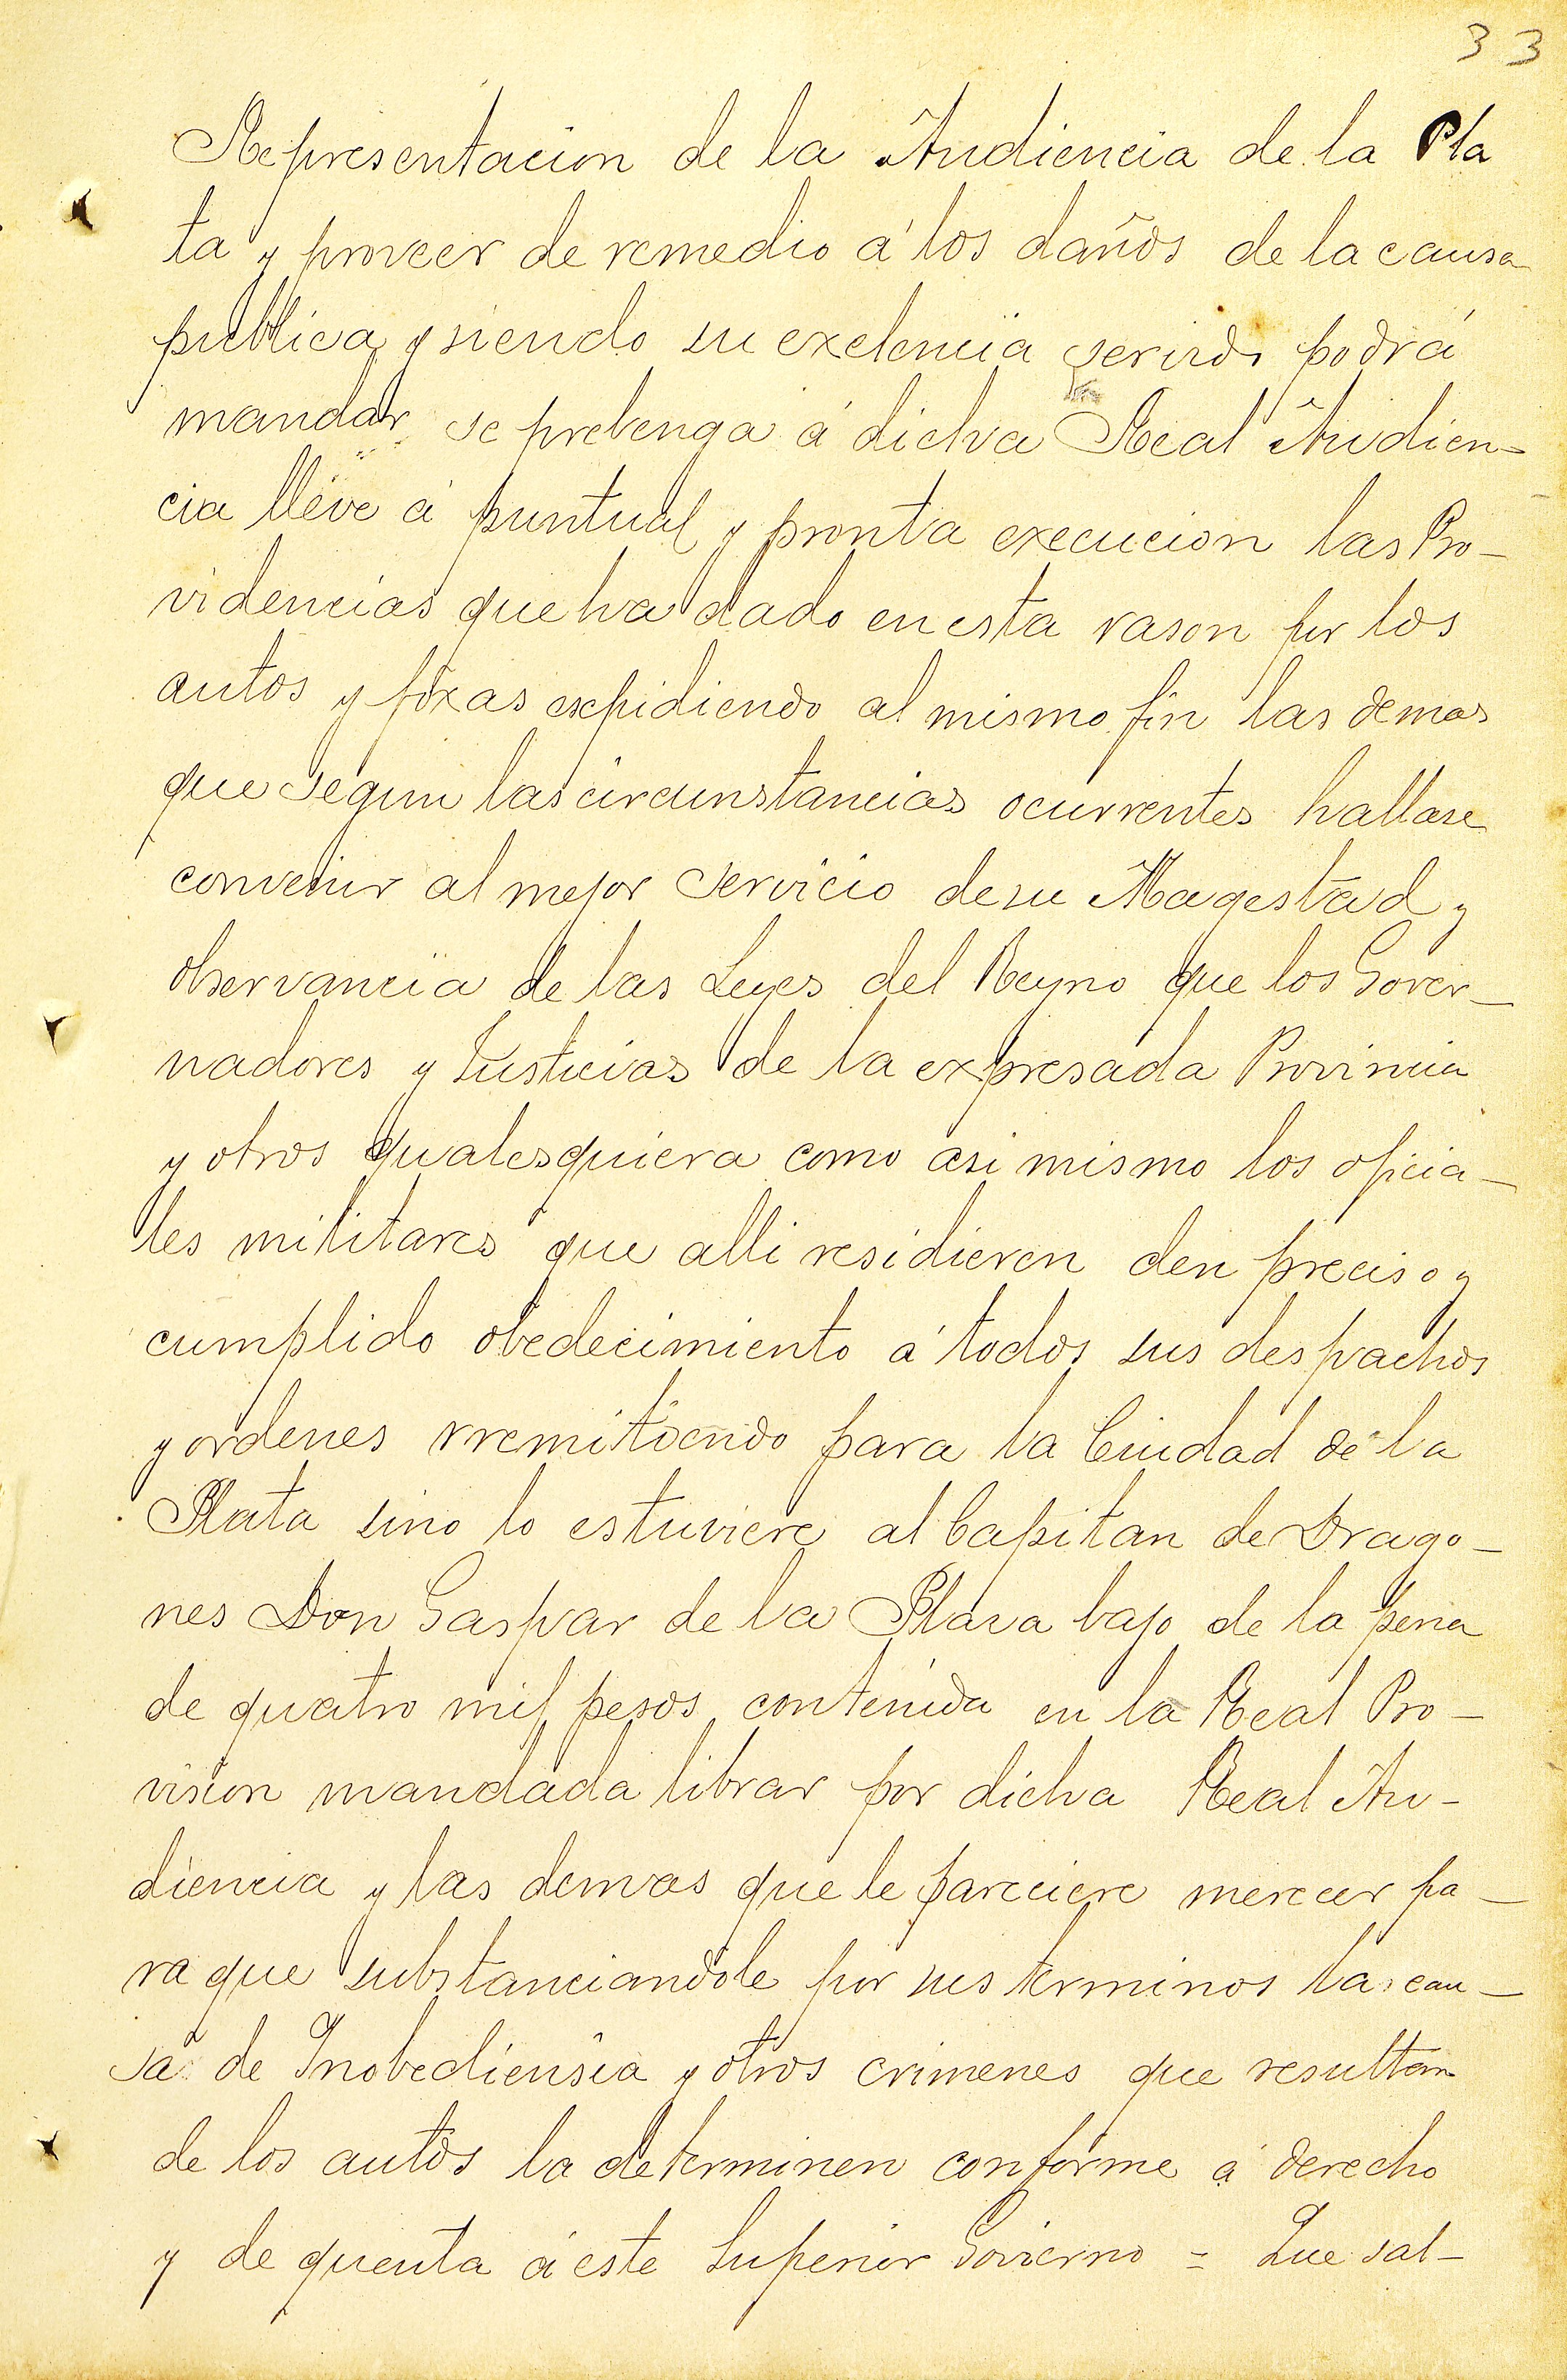 33
Representacion de la Audiencia de la Pla
ta y proveer de remedio á los daños de la causa
publica y siendo su exelencia servido podrá
mandar se prebenga á dicha Real Audien-
cia lleve á puntual y pronta execucion las Pro-
videncias que ha dado en esta rason por los
autos y foxas expidiendo al mismo fin las demas
que segun las circunstancias ocurrentes hallase
convenir al mejor servicio de su Magestad y
observancia de las Leyes del Reyno que los Gover-
nadores y Justicias de la expresada Provincia
y otros qualesquiera como asi mismo los oficia-
les militares que alli residieren den preciso y
cumplido obedecimiento á todos sus despachos
y ordenes rremitiendo para la Ciudad de la
Plata sino lo estuviere al Capitan de Drago-
nes Don Gaspar de la Plaza bajo de la pena
de quatro mil pesos contenida en la Real Pro-
vision mandada librar por dicha Real Au-
diencia y las demas que le pareciere merecer pa-
ra que substanciandole por sus terminos la cau-
sa de Inobediensia y otros crimenes que resultan
de los autos la determinen conforme á derecho
y de quenta á este Superior Govierno = Que sal-